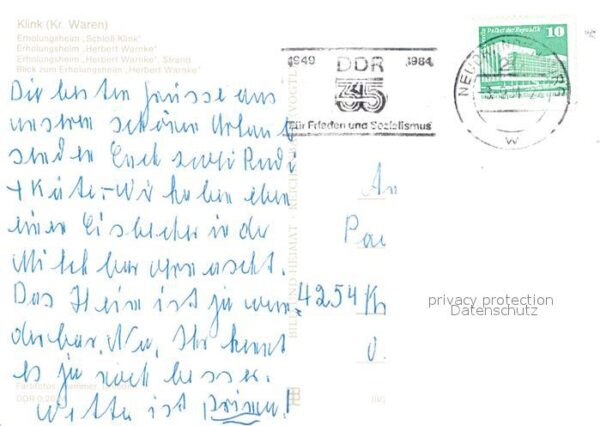 Klink (Kr. Waren)
Erholungsheim „Schloß Klink"
Erholungsheim „Herbert Warnke"
Erholungsheim „Herbert Warnke", Strand
Blick zum Erholungsheim „Herbert Warnke"
Die besten Grüsse aus
unserem schönen Urlaub
senden Euch zwei Rudi
+ Käte. – Wir haben eben
einen Eisbecher in der
Milchbar vernascht.
Das Heim ist ja wun-
derbar. Na, Ihr kennt
es ja noch besser.
Wetter ist prima!
DDR 0,20
BILD UND HEIMAT REICHENBACH
1949 DDR 1984
35
Für Frieden und Sozialismus
Palast der Republik
10
DDR
W
An
4254
privacy protection
Datenschutz